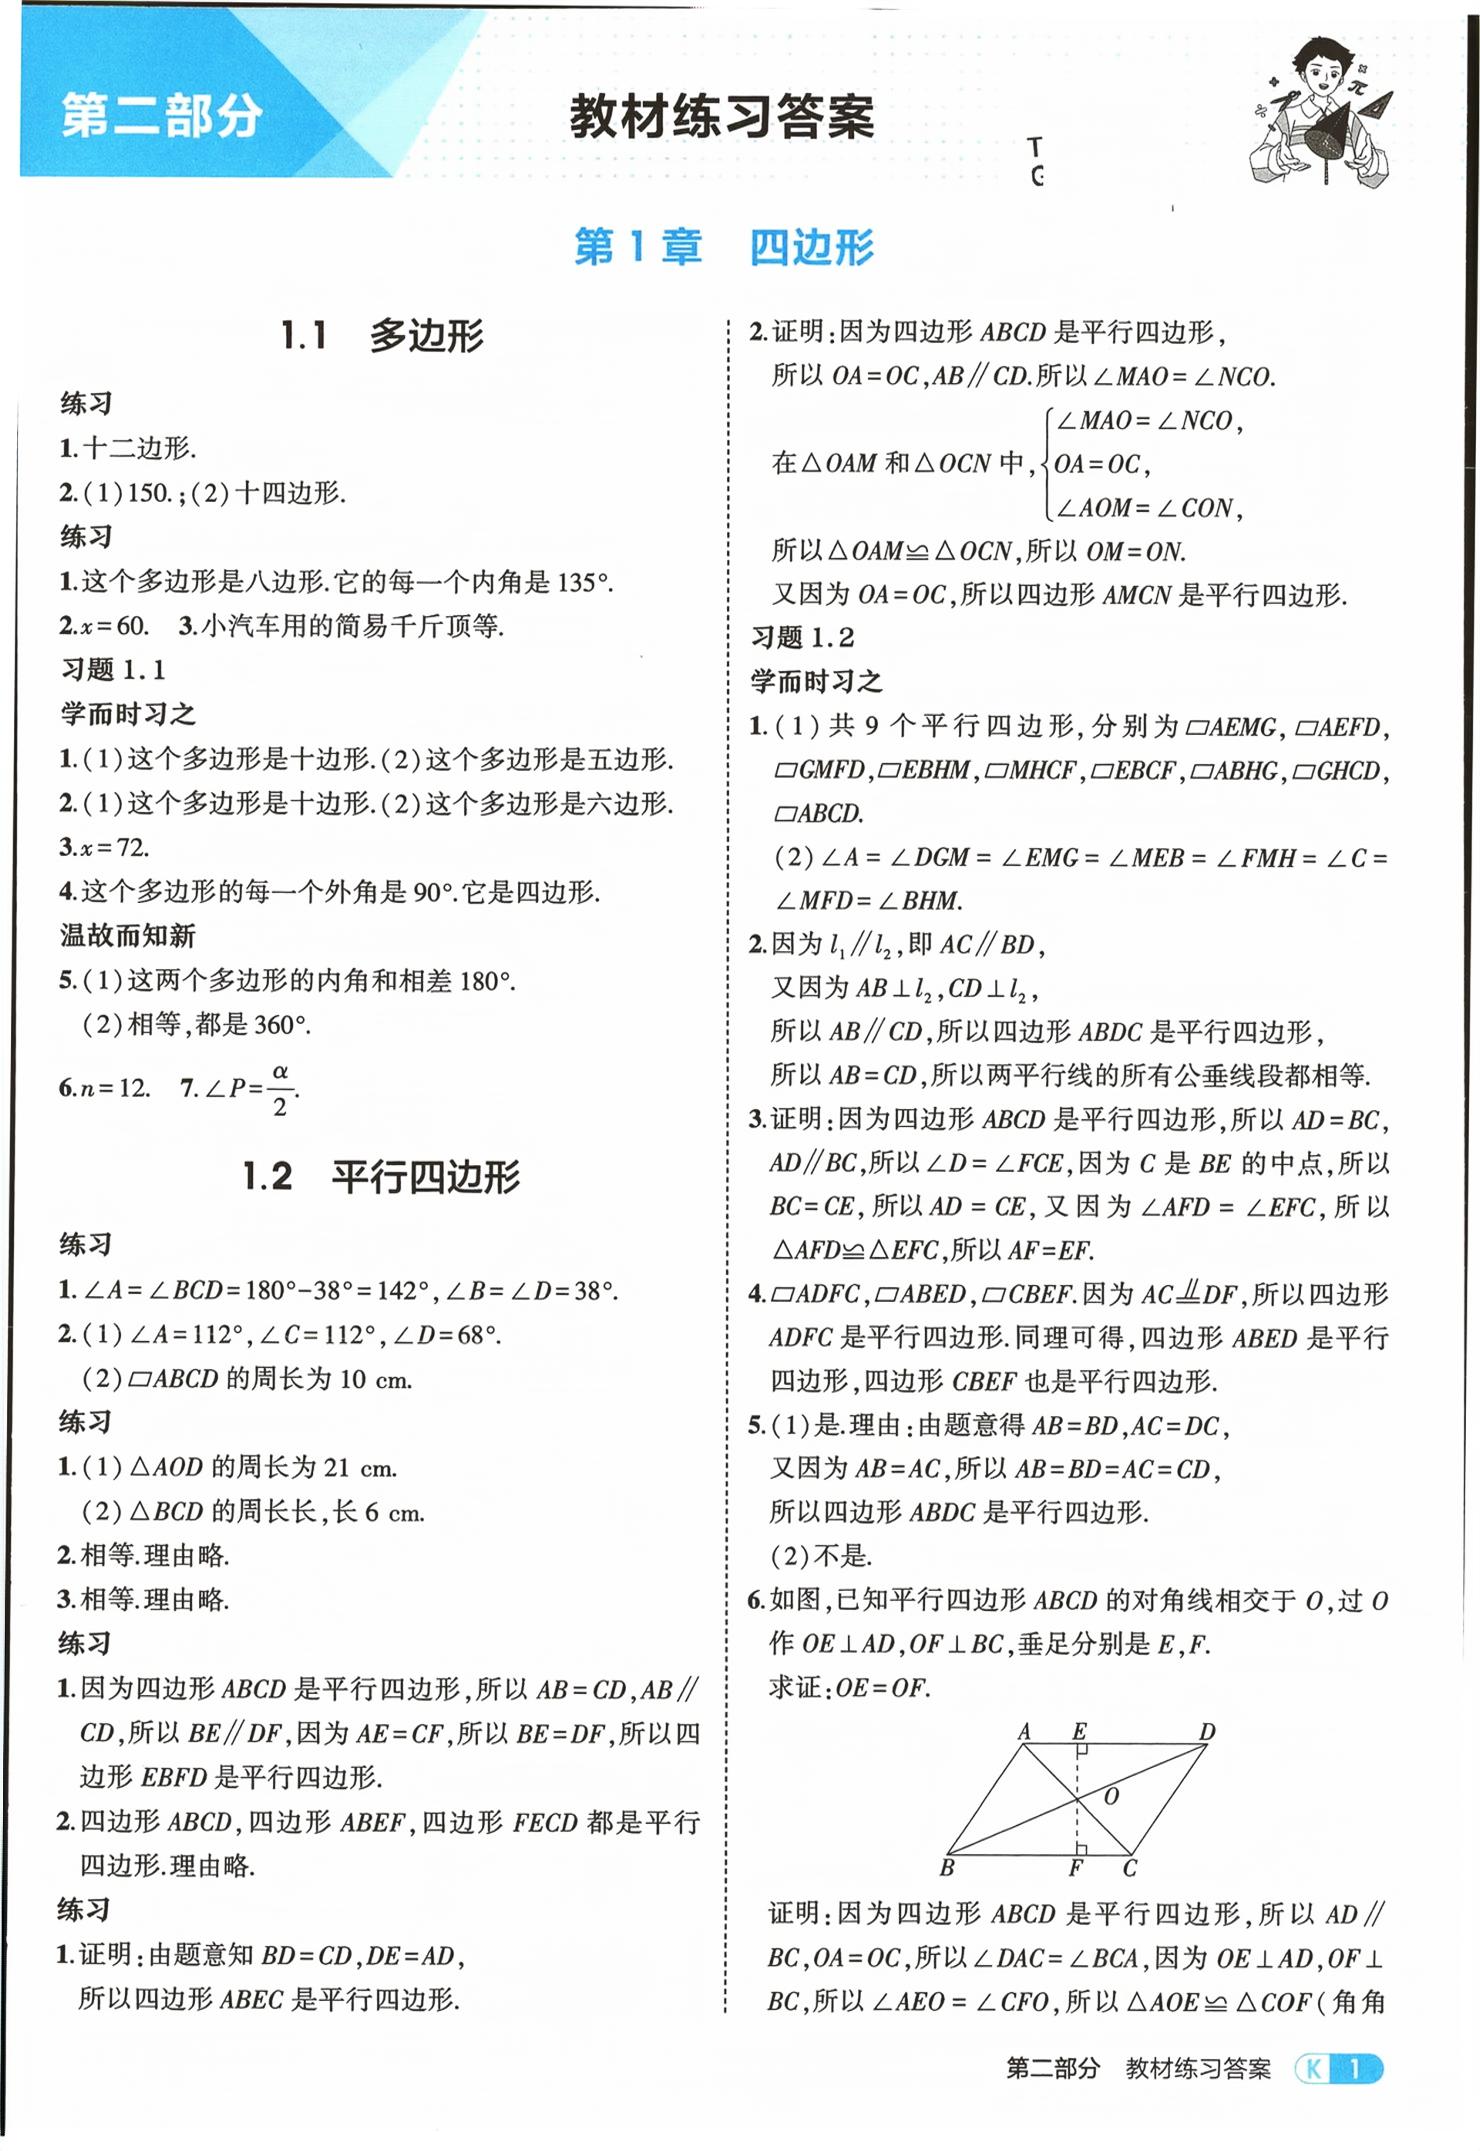 第二部分
教材练习答案
T
G
第1章 四边形
1.1 多边形
练习
1.十二边形.
2.(1)150.;(2)十四边形.
练习
1.这个多边形是八边形.它的每一个内角是135°.
2.x=60. 3.小汽车用的简易千斤顶等.
习题1.1
学而时习之
1.(1)这个多边形是十边形.(2)这个多边形是五边形.
2.(1)这个多边形是十边形.(2)这个多边形是六边形.
3.x=72.
4.这个多边形的每一个外角是90°.它是四边形.
温故而知新
5.(1)这两个多边形的内角和相差180°.
(2)相等,都是360°.
6.n=12. 7.∠P=α/2.
1.2 平行四边形
练习
1.∠A=∠BCD=180°-38°=142°,∠B=∠D=38°.
2.(1)∠A=112°,∠C=112°,∠D=68°.
(2)▱ABCD的周长为10 cm.
练习
1.(1)△AOD的周长为21 cm.
(2)△BCD的周长长,长6 cm.
2.相等.理由略.
3.相等.理由略.
练习
1.因为四边形ABCD是平行四边形,所以AB=CD,AB∥
CD,所以BE∥DF,因为AE=CF,所以BE=DF,所以四
边形EBFD是平行四边形.
2.四边形ABCD,四边形ABEF,四边形FECD都是平行
四边形.理由略.
练习
1.证明:由题意知BD=CD,DE=AD,
所以四边形ABEC是平行四边形.
2.证明:因为四边形ABCD是平行四边形,
所以OA=OC,AB∥CD.所以∠MAO=∠NCO.
∠MAO=∠NCO,
在△OAM和△OCN中,{OA=OC,
∠AOM=∠CON,
所以△OAM≌△OCN,所以OM=ON.
又因为OA=OC,所以四边形AMCN是平行四边形.
习题1.2
学而时习之
1.(1)共9个平行四边形,分别为▱AEMG,▱AEFD,
▱GMFD,▱EBHM,▱MHCF,▱EBCF,▱ABHG,▱GHCD,
▱ABCD.
(2)∠A=∠DGM=∠EMG=∠MEB=∠FMH=∠C=
∠MFD=∠BHM.
2.因为l₁∥l₂,即AC∥BD,
又因为AB⊥l₂,CD⊥l₂,
所以AB∥CD,所以四边形ABDC是平行四边形,
所以AB=CD,所以两平行线的所有公垂线段都相等.
3.证明:因为四边形ABCD是平行四边形,所以AD=BC,
AD∥BC,所以∠D=∠FCE,因为C是BE的中点,所以
BC=CE,所以AD=CE,又因为∠AFD=∠EFC,所以
△AFD≌△EFC,所以AF=EF.
4.▱ADFC,▱ABED,▱CBEF.因为AC⫫DF,所以四边形
ADFC是平行四边形.同理可得,四边形ABED是平行
四边形,四边形CBEF也是平行四边形.
5.(1)是.理由:由题意得AB=BD,AC=DC,
又因为AB=AC,所以AB=BD=AC=CD,
所以四边形ABDC是平行四边形.
(2)不是.
6.如图,已知平行四边形ABCD的对角线相交于O,过O
作OE⊥AD,OF⊥BC,垂足分别是E,F.
求证:OE=OF.
A E D
O
B F C
证明:因为四边形ABCD是平行四边形,所以AD∥
BC,OA=OC,所以∠DAC=∠BCA,因为OE⊥AD,OF⊥
BC,所以∠AEO=∠CFO,所以△AOE≌△COF(角角
第二部分 教材练习答案 K 1